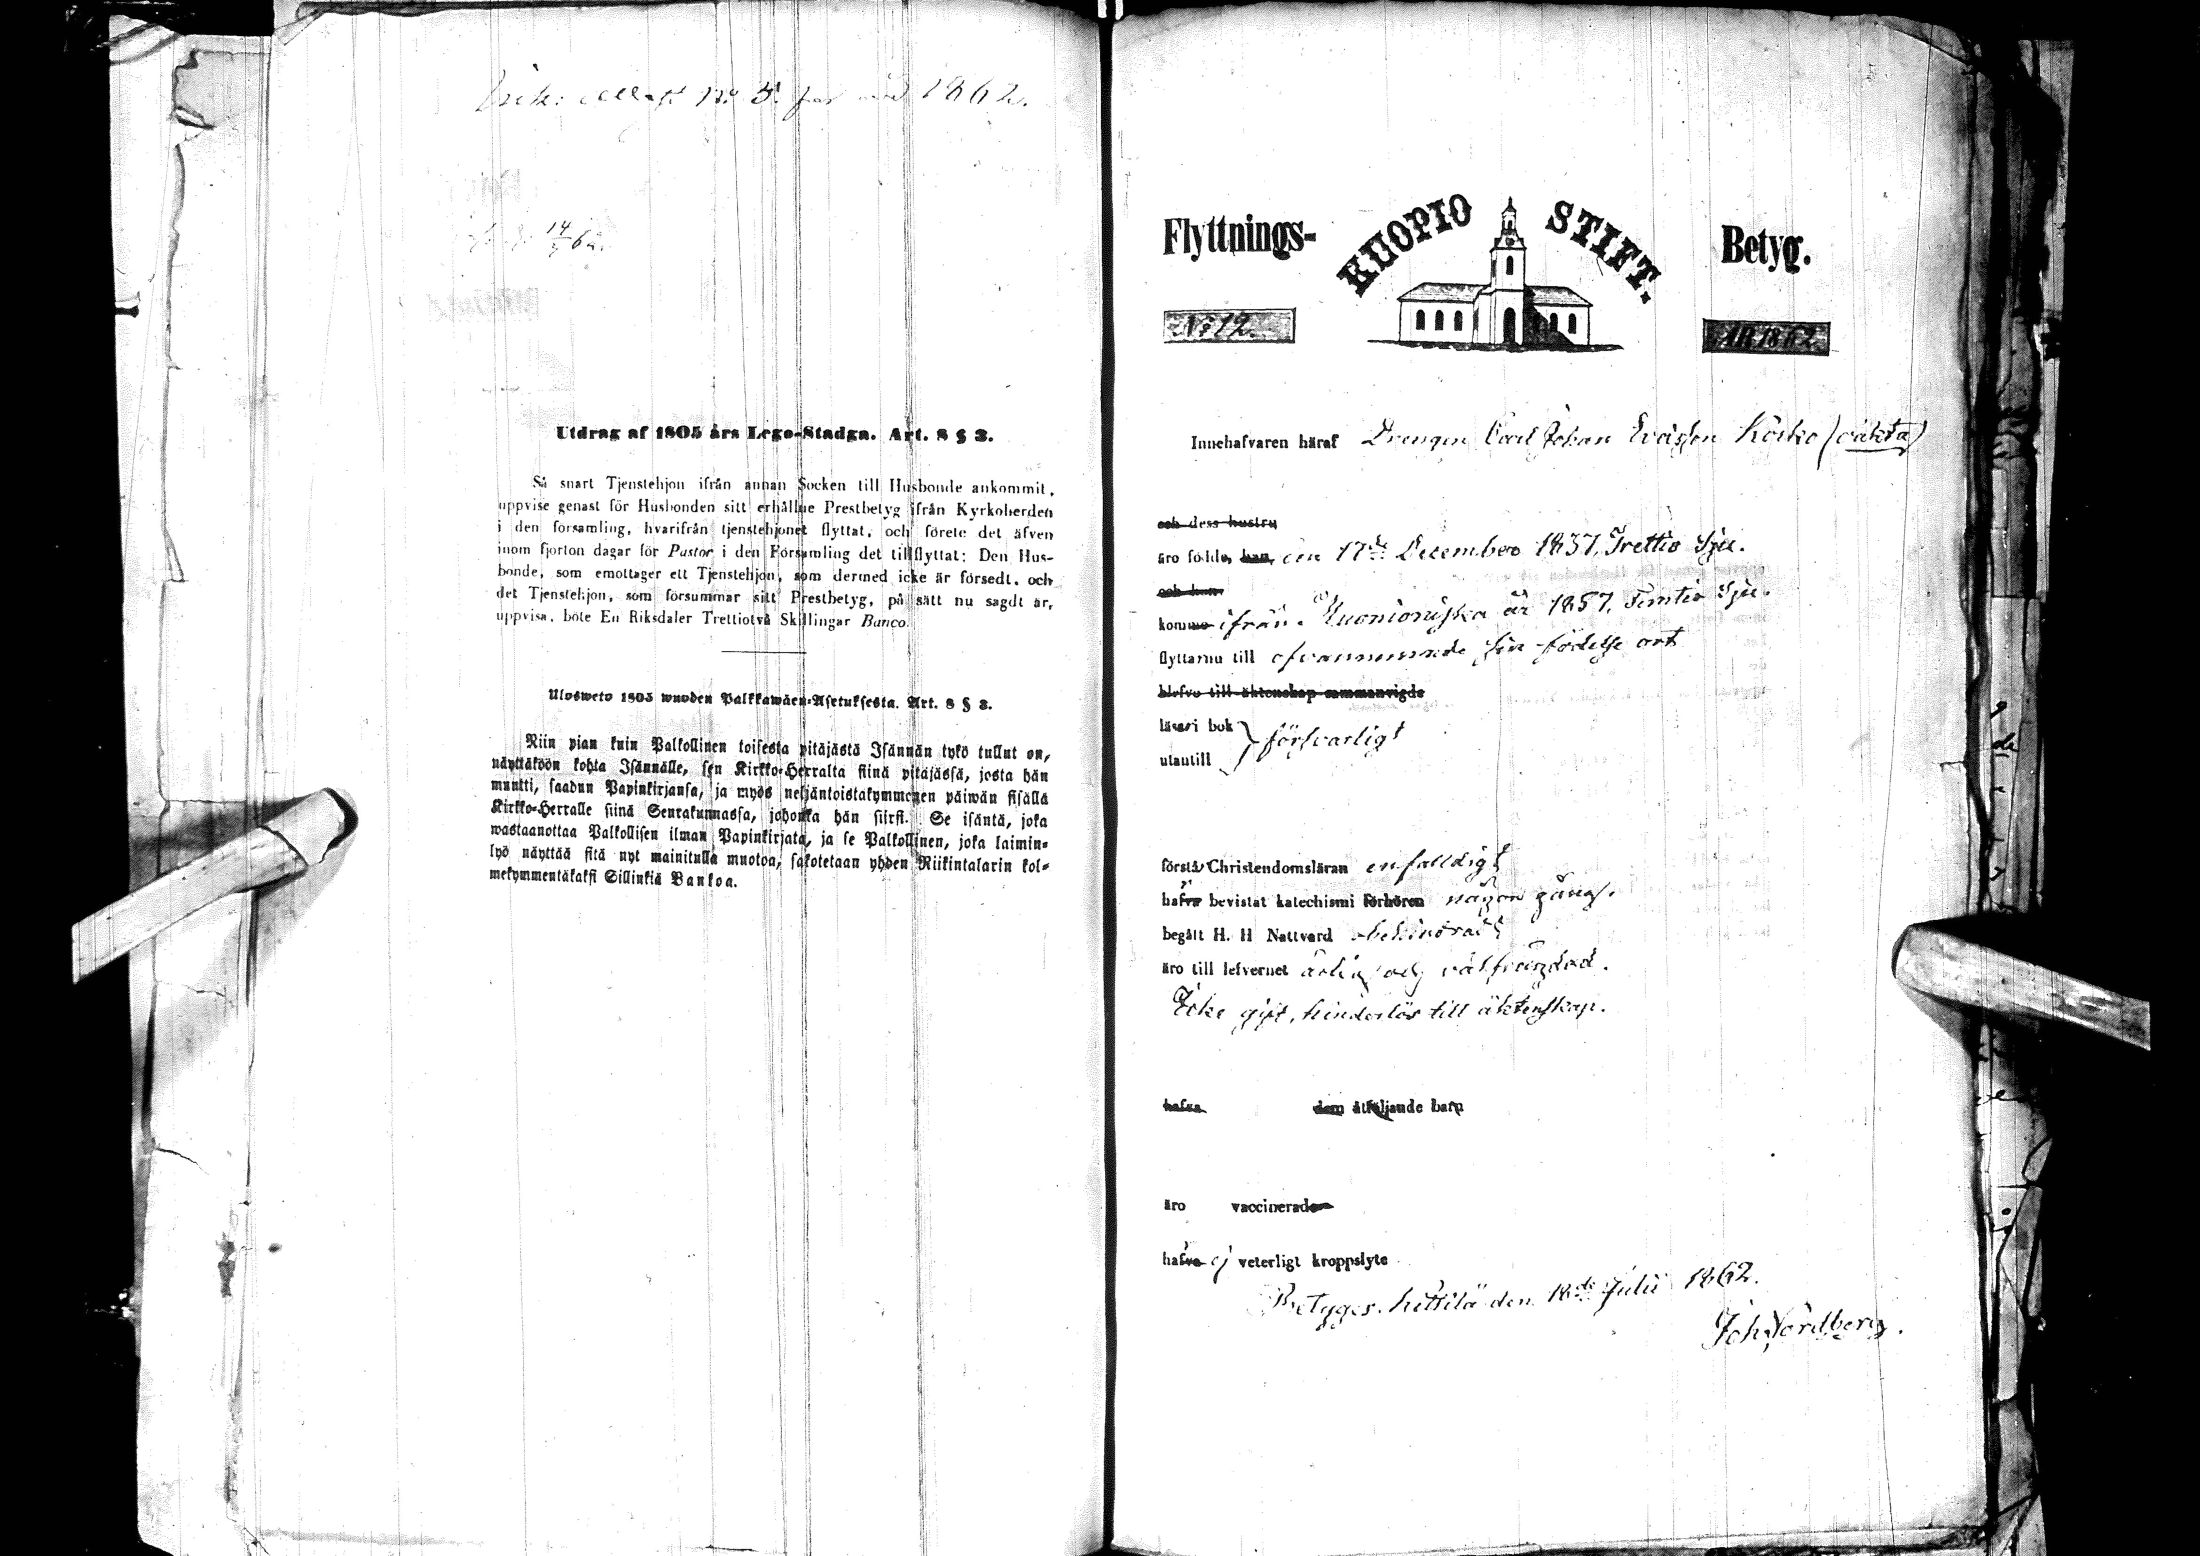 No 5. för år 1862.
14/9 62.
Utdrag af 1805 års Lego-Stadga. Art. 8 § 3.
Så snart Tjenstehjon ifrån annan Socken till Husbonde ankommit,
uppvise genast för Husbonden sitt erhållne Prestbetyg ifrån Kyrkoherden
i den forsamling, hvarifrån tjenstehjonet flyttat, och förete det äfven
inom fjorton dagar för Pastor i den Församling det tillflyttat: Den Hus-
bonde, som emottager ett Tjenstehjon, som dermed icke är försedt, och
det Tjenstehjon, som försummar sitt Prestbetyg, på sätt nu sagdt är,
uppvisa, böte En Riksdaler Trettiotvå Skillingar Banco.
Ulosweto 1805 wuoden Palkkawäen-Asetuksesta. Art. 8 § 3.
Niin pian kuin Palkollinen toisesta pitäjästä Isännän tykö tullut on,
näyttäköön kohta Isännälle, sen Kirkko-Herralta siinä pitäjässä, josta hän
muutti, saadun Papinkirjansa, ja myös neljäntoistakymmenen päiwän sisällä
Kirkko-Herralle siinä Seurakunnassa, johonka hän siirsi. Se isäntä, joka
wastaanottaa Palkollisen ilman Papinkirjata, ja se Palkollinen, joka laimin-
lyö näyttää sitä nyt mainitulla muotoa, sakotetaan yhden Riikintalarin kol-
mekymmentäkaksi Sillinkiä Bankoa.
Flyttnings- KUOPIO STIFT. Betyg.
No 12. ÅR 1862
Innehafvaren häraf Drengen Carl Johan Ericsson Körkö (oäkta)
och dess hustru
äro födde, han, den 17de December 1837, Trettio Sju.
och hon
komme ifrån Muonioniska år 1857, Femtio Sju.
flyttarnu till ofvannämnde sin födelse ort
blefvo till äktenskap sammanvigde
läsa i bok } försvarligt
utantill
förstå Christendomsläran enfalldigt
hafva bevistat katechismi förhören någon gång.
begått H. H Nattvard obehindradt
äro till lefvernet ärlig och välfrägdad.
Icke gift, hinderlös till äktenskap.
hafva dem åtföljande barn
äro vaccinerade
hafva ej veterligt kroppslyte
Betygar. Kittilä den 18de Julii 1862.
Joh. Nordberg.